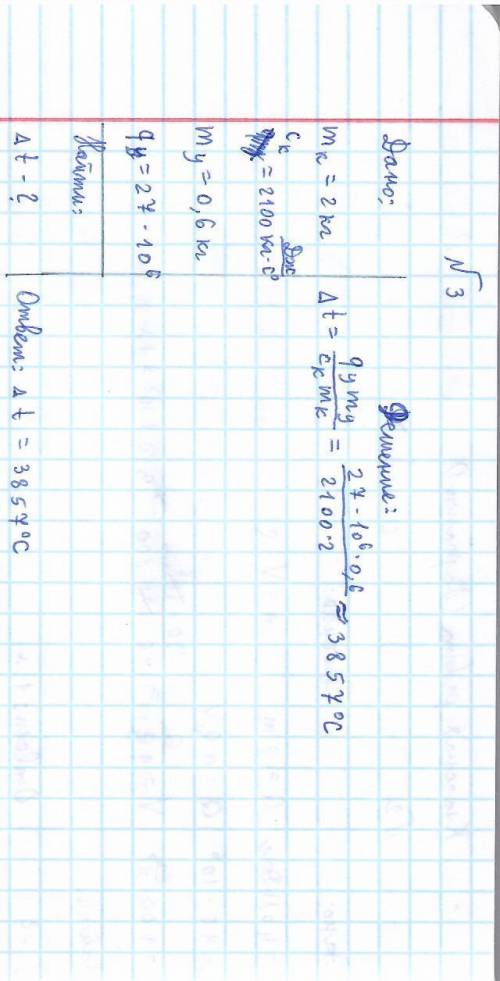 №3
Дано:
m к = 2 кг
c к = 2100 Дж/кг·C°
m у = 0,6 кг
q у = 27·10⁶
Найти:
Δt - ?
Решение:
Δt = q у m у / c к m к = 27·10⁶·0,6 / 2100·2 ≈ 3857°C
Ответ: Δt = 3857°C